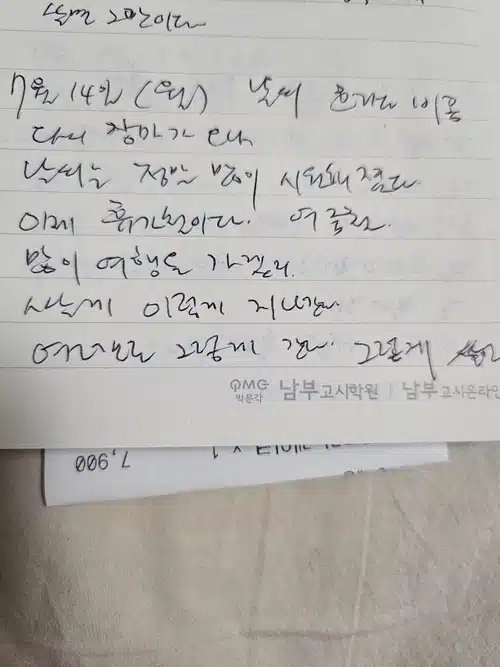 살면 그만이다
7월 14일 (월) 날씨
다시 장마가 온다.
날씨는 정말 많이 시원해졌다.
이제 휴가철이다. 여름철
많이 여행을 가겠다.
이렇게 지나간다.
그렇게 간다. 그렇게
PMG 박문각 남부고시학원 | 남부고시온라인
x 1
7,900